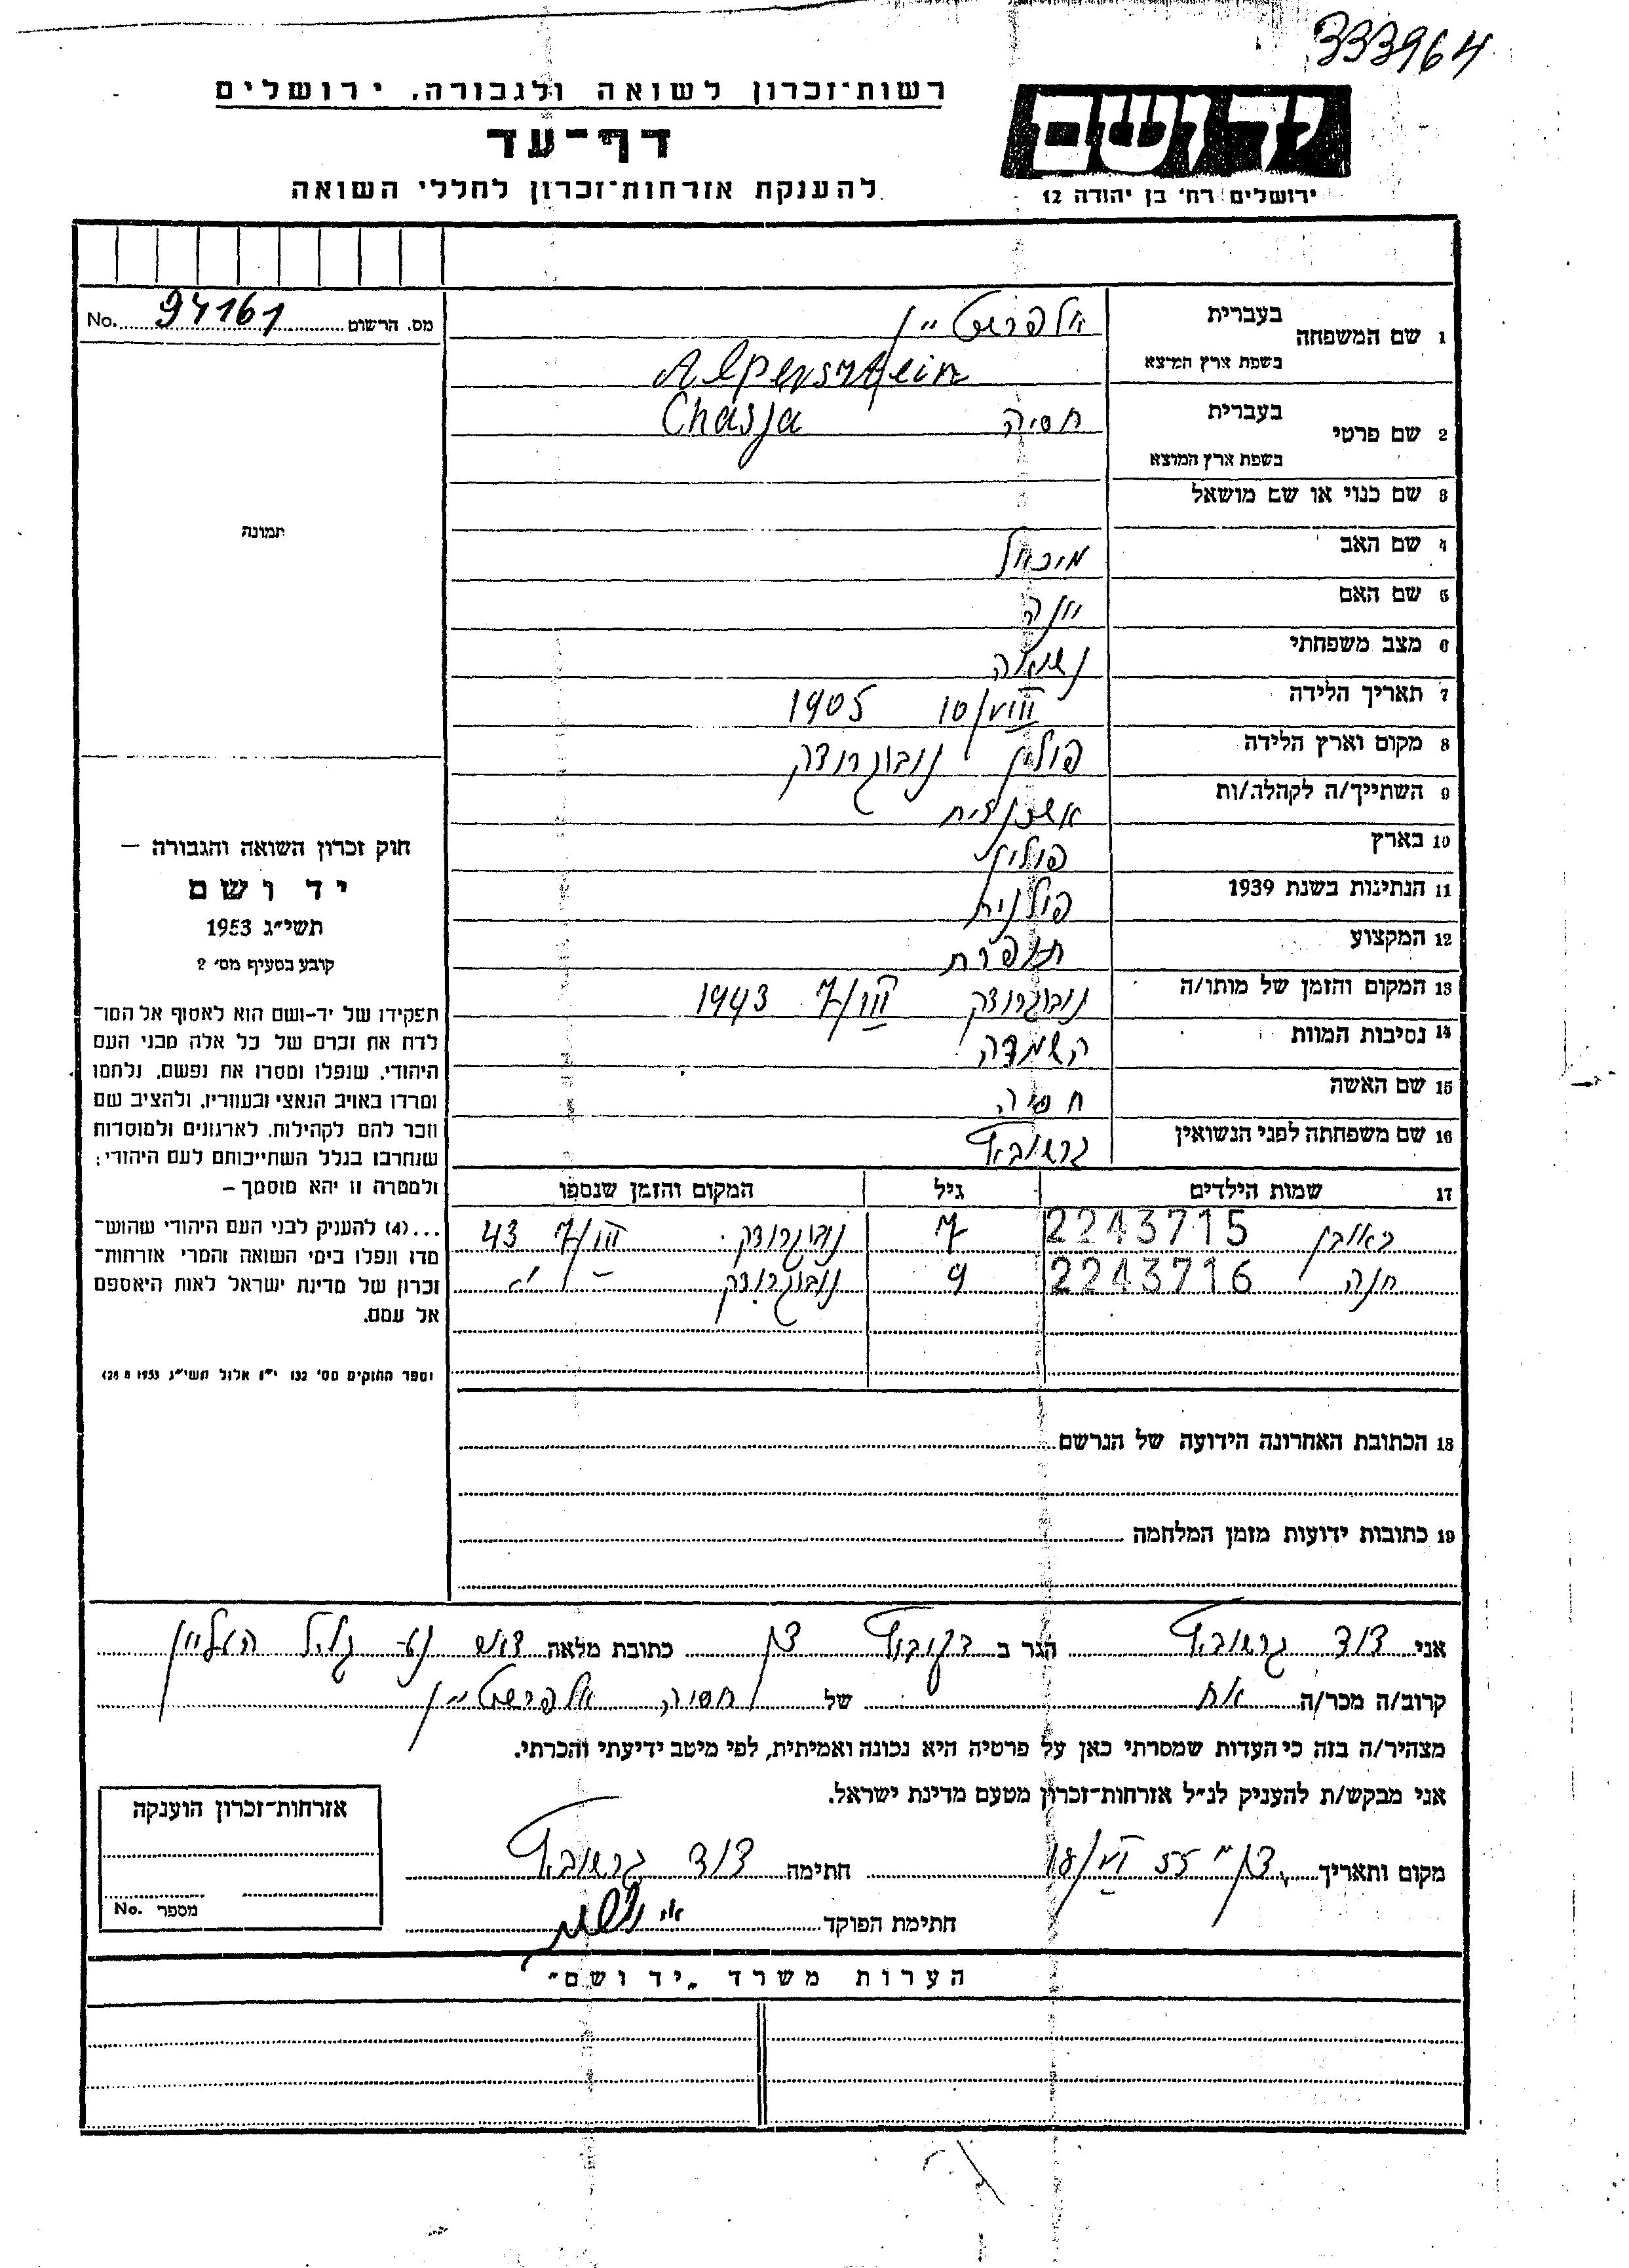 333964
רשות־זכרון לשואה ולגבורה, ירושלים
דף־עד
להענקת אזרחות־זכרון לחללי השואה
יד ושם
ירושלים רח' בן יהודה 12
מס. הרשום 94161 No.
1 שם המשפחה בעברית אלפרשטיין
בשפת ארץ המוצא Alperstein
2 שם פרטי בעברית חסיה Chasja
בשפת ארץ המוצא
3 שם כנוי או שם מושאל
4 שם האב מיכאל
5 שם האם יונה
6 מצב משפחתי נשואה
7 תאריך הלידה 10/VIII 1905
8 מקום וארץ הלידה פולין נובוגרודק
9 השתייך/ה לקהלה/ות אשכנזית
10 בארץ פולין
11 הנתינות בשנת 1939 פולנית
12 המקצוע תופרת
13 המקום והזמן של מותו/ה נובוגרודק 7/III 1943
14 נסיבות המוות השמדה
15 שם האשה חסיה
16 שם משפחתה לפני הנשואין גרשובסקי
17 שמות הילדים גיל המקום והזמן שנספו
ראובן 2243715 7 נובוגרודק 7/III 43
חנה 2243716 9 נובוגרודק
18 הכתובת האחרונה הידועה של הנרשם
19 כתובות ידועות מזמן המלחמה
תמונה
חוק זכרון השואה והגבורה –
יד ושם
תשי״ג 1953
קובע בסעיף מס' 2
תפקידו של יד-ושם הוא לאסוף אל המו־
לדת את זכרם של כל אלה מבני העם
היהודי, שנפלו ומסרו את נפשם, נלחמו
ומרדו באויב הנאצי ובעוזריו, ולהציב שם
וזכר להם לקהילות, לארגונים ולמוסדות
שנחרבו בגלל השתייכותם לעם היהודי;
ולמטרה זו יהא מוסמך –
...(4) להעניק לבני העם היהודי שהוש־
מדו ונפלו בימי השואה והמרי אזרחות־
זכרון של מדינת ישראל לאות היאספם
אל עמם.
(ספר החוקים מס' 132 י״ז אלול תשי״ג 28.8.1953)
אני דוד גרשובסקי הגר ב דן כתובת מלאה גליל העליון
קרוב/ה מכר/ה אח של חסיה אלפרשטיין
מצהיר/ה בזה כי העדות שמסרתי כאן על פרטיה היא נכונה ואמיתית, לפי מיטב ידיעתי והכרתי.
אני מבקש/ת להעניק לנ״ל אזרחות־זכרון מטעם מדינת ישראל.
מקום ותאריך דן 55 18/VI חתימה דוד גרשובסקי
חתימת הפוקד
אזרחות־זכרון הוענקה
מספר No.
הערות משרד „יד ושם״